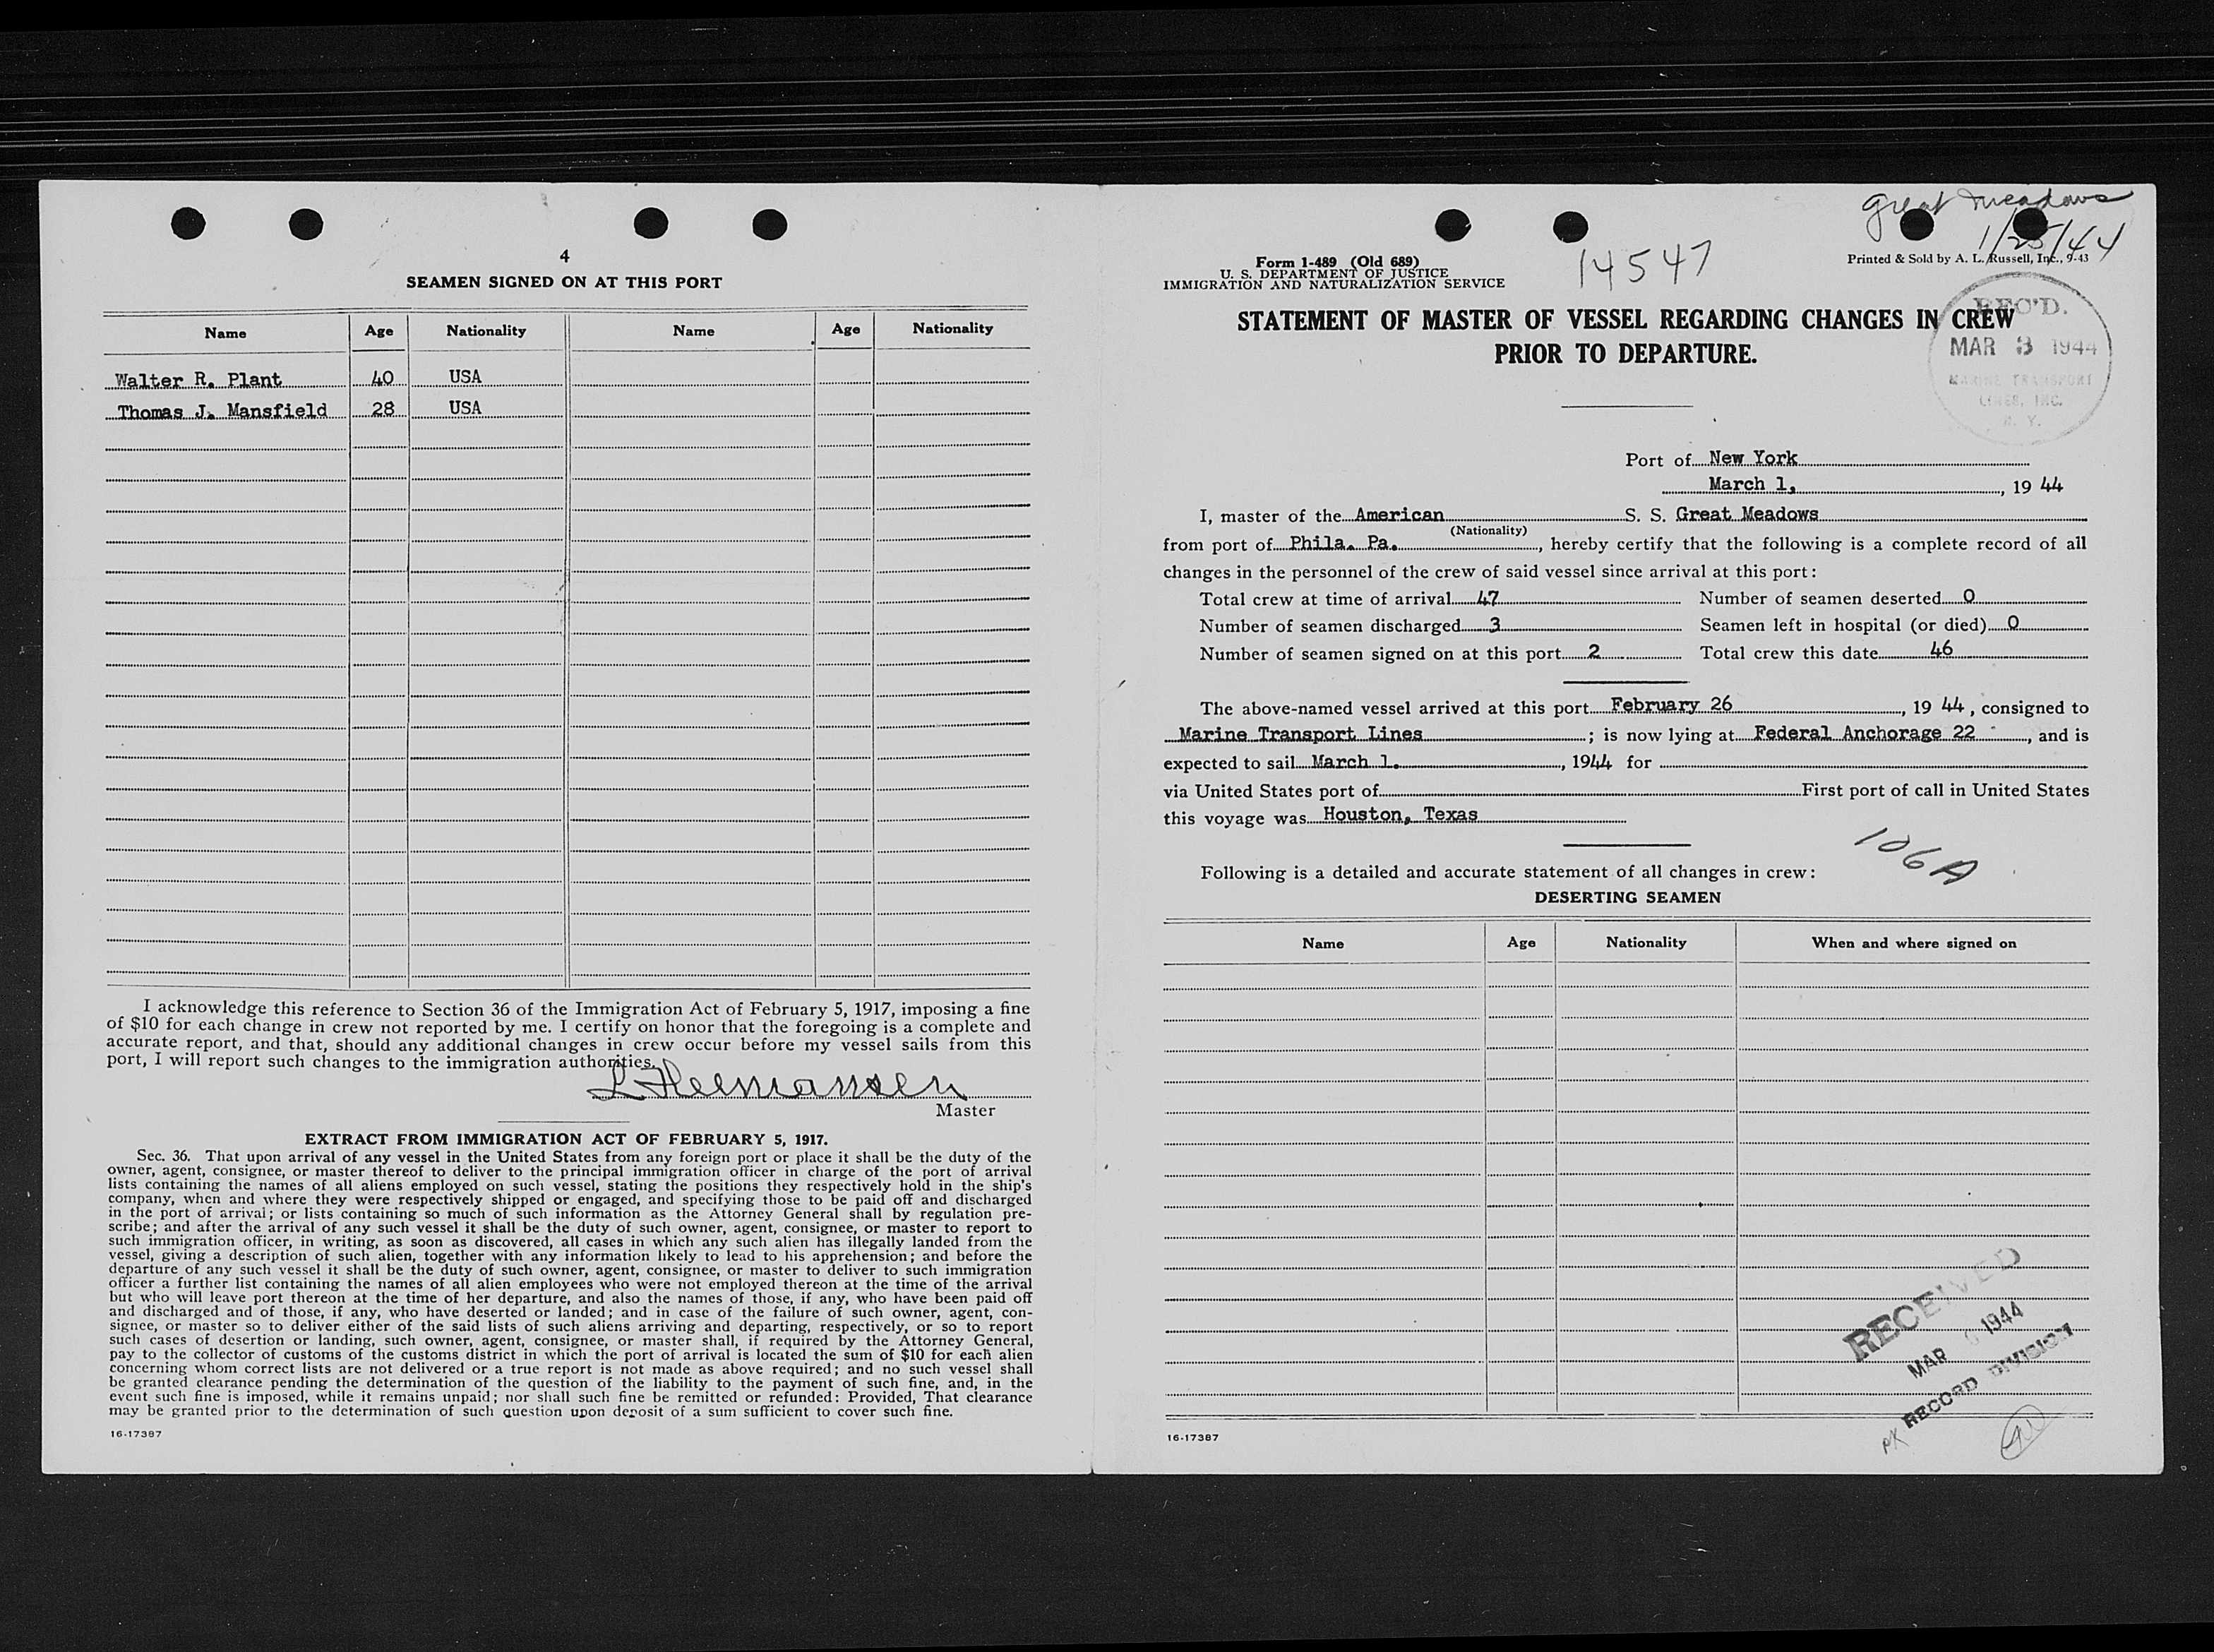 4
SEAMEN SIGNED ON AT THIS PORT
Name Age Nationality Name Age Nationality
Walter R. Plant 40 USA
Thomas J. Mansfield 28 USA
I acknowledge this reference to Section 36 of the Immigration Act of February 5, 1917, imposing a fine
of $10 for each change in crew not reported by me. I certify on honor that the foregoing is a complete and
accurate report, and that, should any additional changes in crew occur before my vessel sails from this
port, I will report such changes to the immigration authorities.
Master
EXTRACT FROM IMMIGRATION ACT OF FEBRUARY 5, 1917.
Sec. 36. That upon arrival of any vessel in the United States from any foreign port or place it shall be the duty of the
owner, agent, consignee, or master thereof to deliver to the principal immigration officer in charge of the port of arrival
lists containing the names of all aliens employed on such vessel, stating the positions they respectively hold in the ship's
company, when and where they were respectively shipped or engaged, and specifying those to be paid off and discharged
in the port of arrival; or lists containing so much of such information as the Attorney General shall by regulation pre-
scribe; and after the arrival of any such vessel it shall be the duty of such owner, agent, consignee, or master to report to
such immigration officer, in writing, as soon as discovered, all cases in which any such alien has illegally landed from the
vessel, giving a description of such alien, together with any information likely to lead to his apprehension; and before the
departure of any such vessel it shall be the duty of such owner, agent, consignee, or master to deliver to such immigration
officer a further list containing the names of all alien employees who were not employed thereon at the time of the arrival
but who will leave port thereon at the time of her departure, and also the names of those, if any, who have been paid off
and discharged and of those, if any, who have deserted or landed; and in case of the failure of such owner, agent, con-
signee, or master so to deliver either of the said lists of such aliens arriving and departing, respectively, or so to report
such cases of desertion or landing, such owner, agent, consignee, or master shall, if required by the Attorney General,
pay to the collector of customs of the customs district in which the port of arrival is located the sum of $10 for each alien
concerning whom correct lists are not delivered or a true report is not made as above required; and no such vessel shall
be granted clearance pending the determination of the question of the liability to the payment of such fine, and, in the
event such fine is imposed, while it remains unpaid; nor shall such fine be remitted or refunded: Provided, That clearance
may be granted prior to the determination of such question upon deposit of a sum sufficient to cover such fine.
16-17387
Great Meadows
1/25/44
Form 1-489 (Old 689)
U. S. DEPARTMENT OF JUSTICE
IMMIGRATION AND NATURALIZATION SERVICE
14547
Printed & Sold by A. L. Russell, Inc., 9-43
STATEMENT OF MASTER OF VESSEL REGARDING CHANGES IN CREW
PRIOR TO DEPARTURE.
REC'D.
MAR 3 1944
MARINE TRANSPORT
LINES, INC.
N. Y.
Port of New York
March 1, , 19 44
I, master of the American S. S. Great Meadows
(Nationality)
from port of Phila. Pa. , hereby certify that the following is a complete record of all
changes in the personnel of the crew of said vessel since arrival at this port:
Total crew at time of arrival 47 Number of seamen deserted 0
Number of seamen discharged 3 Seamen left in hospital (or died) 0
Number of seamen signed on at this port 2 Total crew this date 46
The above-named vessel arrived at this port February 26 , 19 44, consigned to
Marine Transport Lines ; is now lying at Federal Anchorage 22 , and is
expected to sail March 1. , 1944 for
via United States port of First port of call in United States
this voyage was Houston, Texas
106A
Following is a detailed and accurate statement of all changes in crew:
DESERTING SEAMEN
Name Age Nationality When and where signed on
RECEIVED
MAR 1944
RECORD DIVISION
PK
16-17387